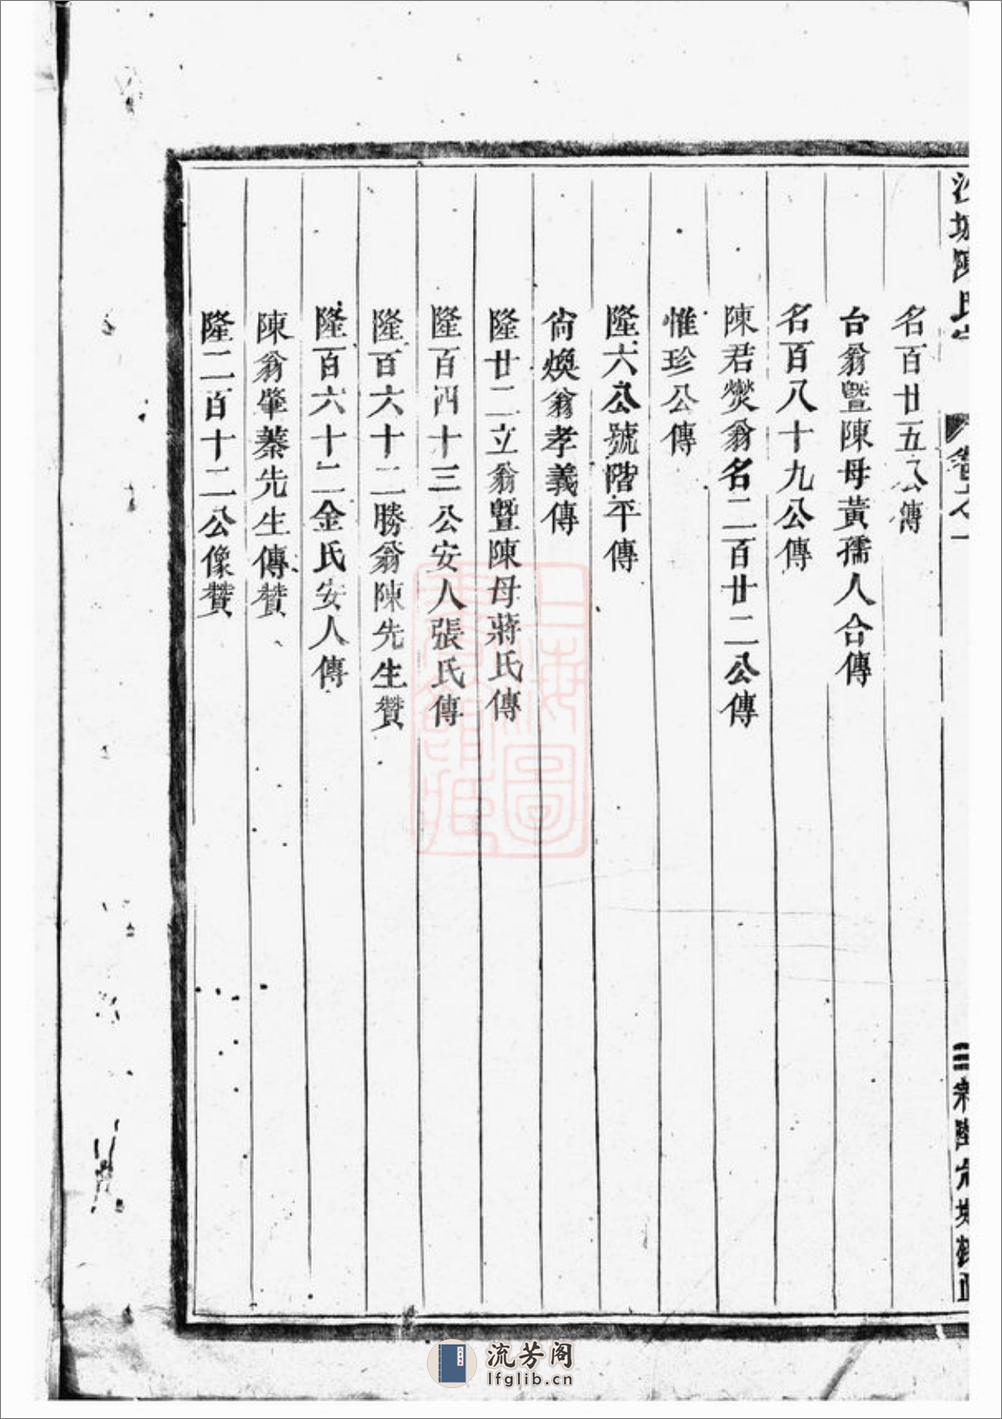 沙城陳氏
卷之一
名百廿五公傳
台翁暨陳母黃孺人合傳
名百八十九公傳
陳君爕翁名二百廿二公傳
惟珍公傳
隆六公號階平傳
尙煥翁孝義傳
隆廿二立翁暨陳母蔣氏傳
隆百四十三公安人張氏傳
隆百六十二勝翁陳先生贊
隆百六十二金氏安人傳
陳翁肇蓁先生傳贊
隆二百十二公像贊
流芳阁
lfglib.cn